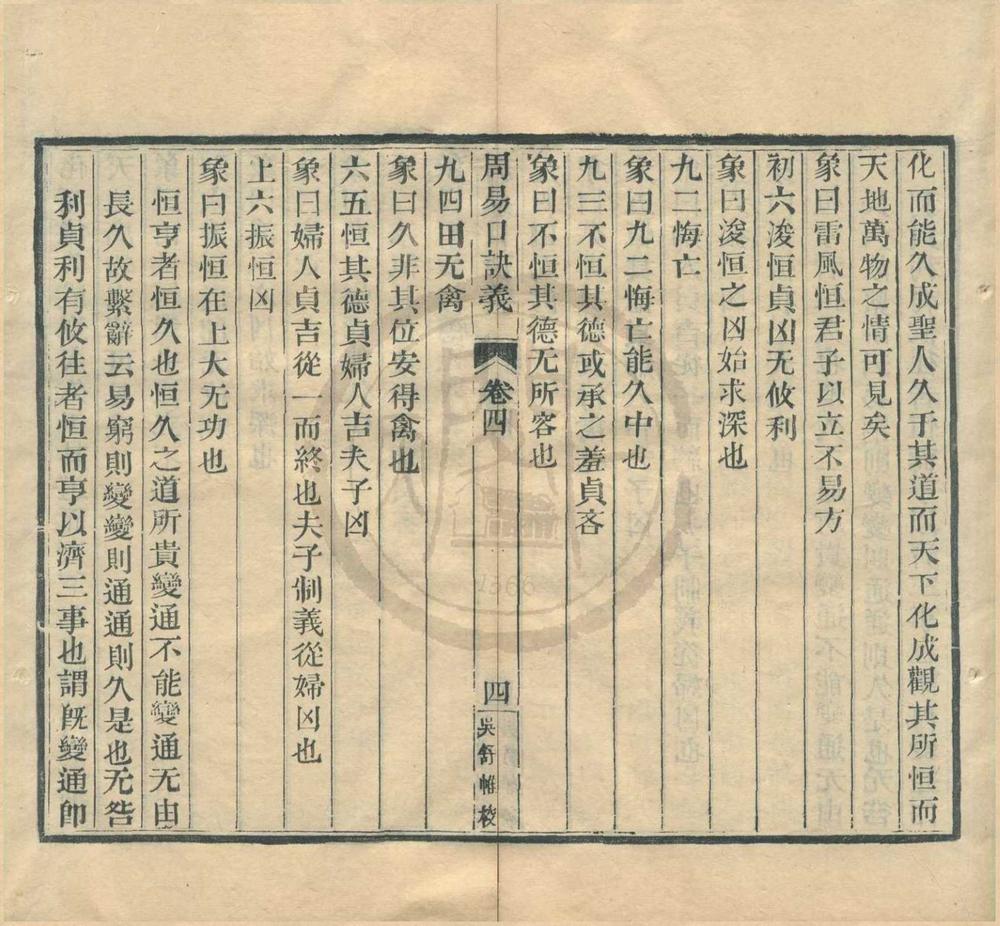 化而能久成聖人久于其道而天下化成觀其所恒而
天地萬物之情可見矣
象曰雷風恒君子以立不易方
初六浚恒貞凶无攸利
象曰浚恒之凶始求深也
九二悔亡
象曰九二悔亡能久中也
九三不恒其德或承之羞貞吝
象曰不恒其德无所容也
周易口訣義 卷四 四 吳舒帷校
九四田无禽
象曰久非其位安得禽也
六五恒其德貞婦人吉夫子凶
象曰婦人貞吉從一而終也夫子制義從婦凶也
上六振恒凶
象曰振恒在上大无功也
恒亨者恒久也恒久之道所貴變通不能變通无由
長久故繫辭云易窮則變變則通通則久是也无咎
利貞利有攸往者恒而亨以濟三事也謂既變通即
1966